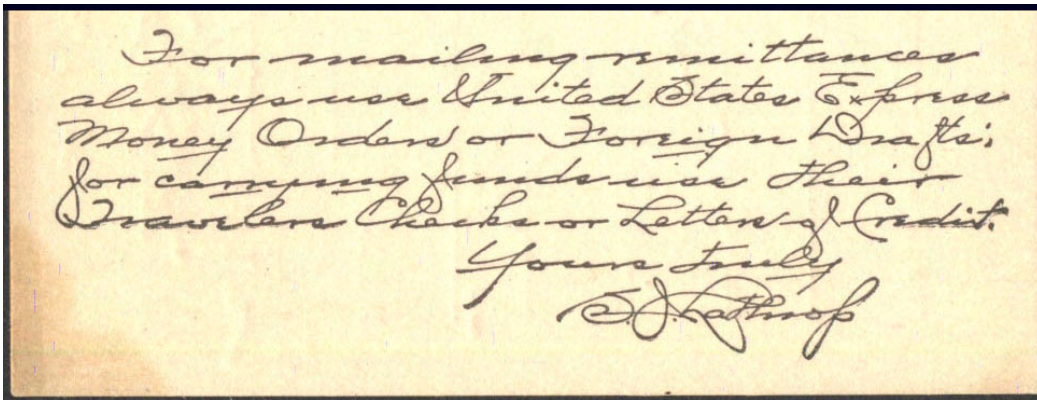 For mailing remittances
always use United States Express
Money Orders or Foreign Drafts;
for carrying funds use their
Travelers Checks or Letters of Credit.
Yours truly
S. J. Lathrop